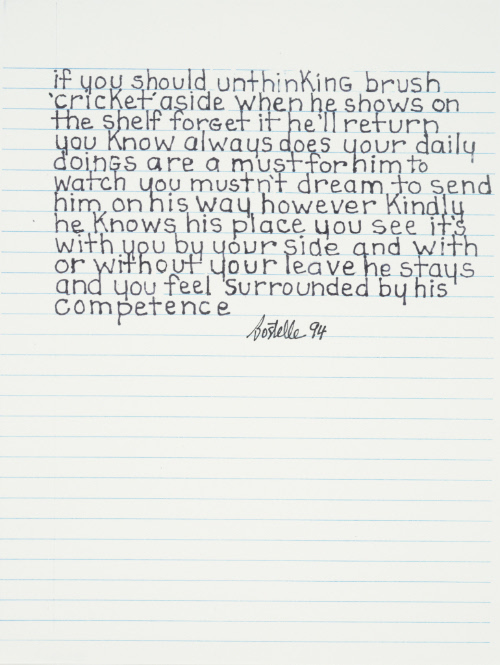 if you should unthinking brush
'cricket' aside when he shows on
the shelf forget it he'll return
you know always does your daily
doings are a must for him to
watch you mustn't dream to send
him on his way however kindly
he knows his place you see it's
with you by your side and with
or without your leave he stays
and you feel surrounded by his
competence
Sostelle 94